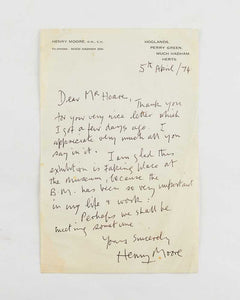 HENRY MOORE, O.M., C.H.
HOGLANDS,
PERRY GREEN
MUCH HADHAM
HERTS
5th April/74
Dear Mr Hoare, Thank you
for your very nice letter which
I got a few days ago. I
appreciate very much all you
say in it. I am glad this
exhibition is taking place at
the museum, because the
B.M. has been so very important
in my life & work.
Perhaps we shall be
meeting sometime
Yours Sincerely
Henry Moore